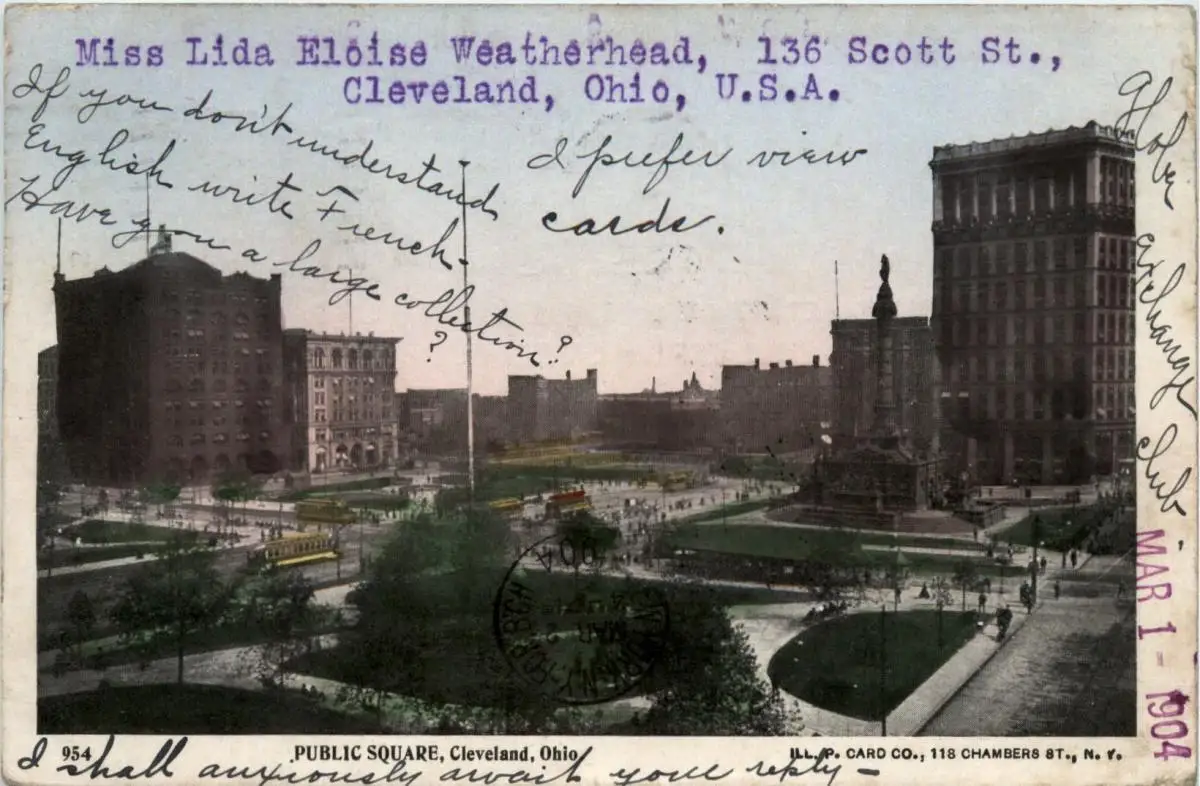 Miss Lida Eloise Weatherhead, 136 Scott St.,
Cleveland, Ohio, U.S.A.
If you don't understand
English write French.
Have you a large collection??
I prefer view
cards.
exchange club.
MAR 1 - 1904
954
PUBLIC SQUARE, Cleveland, Ohio
ILL. P. CARD CO., 118 CHAMBERS ST., N. Y.
I shall anxiously await your reply -